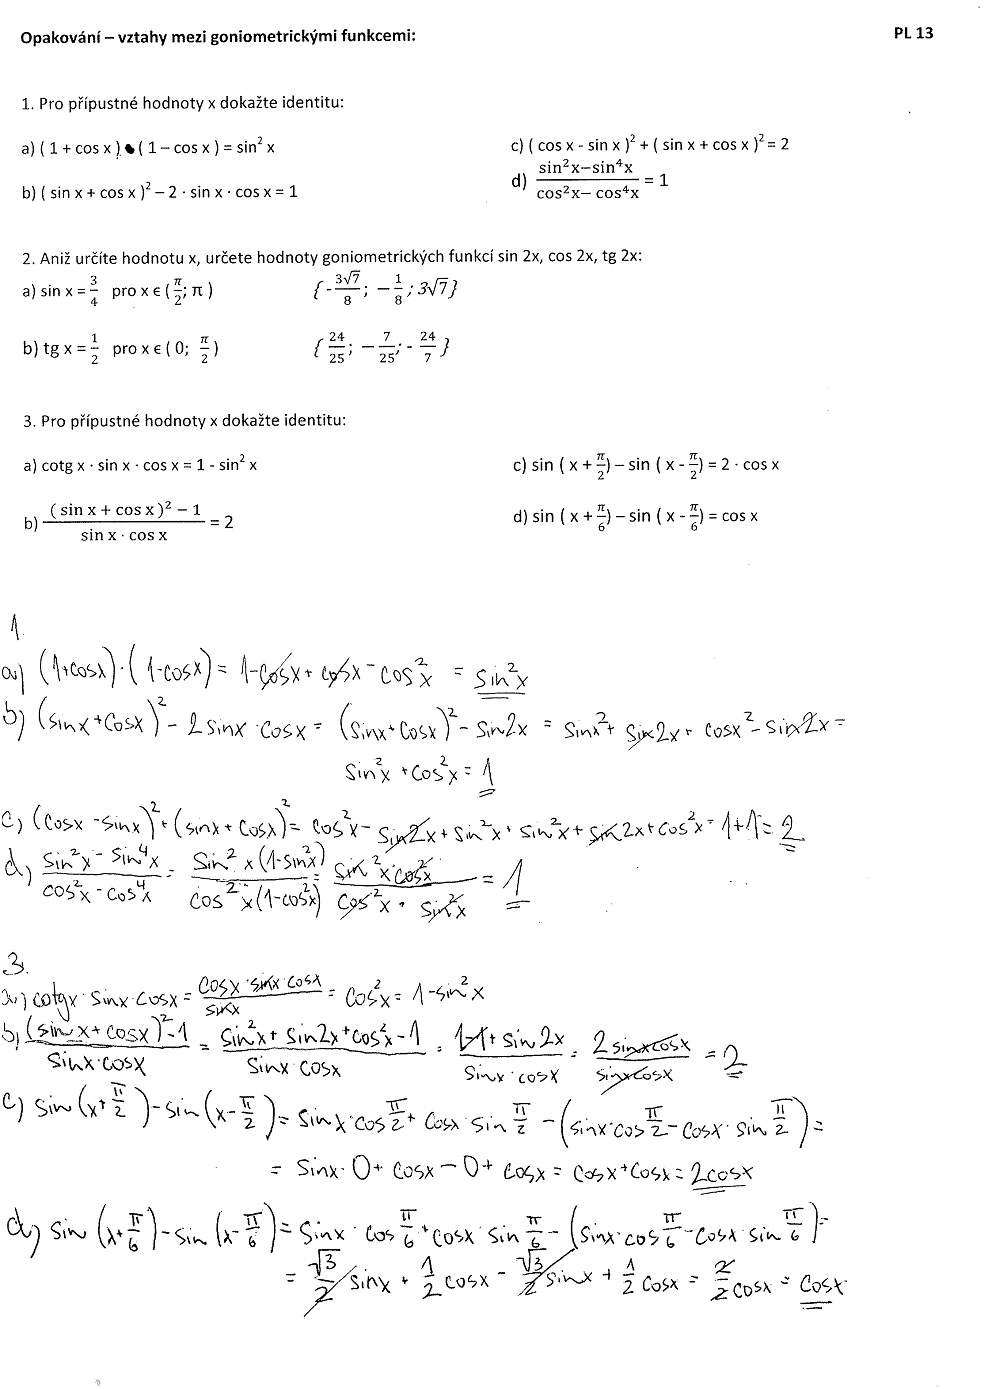 Opakování – vztahy mezi goniometrickými funkcemi: PL 13
1. Pro přípustné hodnoty x dokažte identitu:
a) ( 1 + cos x ) • ( 1 – cos x ) = sin² x c) ( cos x - sin x )² + ( sin x + cos x )² = 2
b) ( sin x + cos x )² – 2 · sin x · cos x = 1 d) (sin²x−sin⁴x)/(cos²x− cos⁴x) = 1
2. Aniž určíte hodnotu x, určete hodnoty goniometrických funkcí sin 2x, cos 2x, tg 2x:
a) sin x = 3/4 pro x ϵ ( π/2; π ) {- 3√7/8; − 1/8; 3√7}
b) tg x = 1/2 pro x ϵ ( 0; π/2 ) { 24/25; − 7/25; - 24/7 }
3. Pro přípustné hodnoty x dokažte identitu:
a) cotg x · sin x · cos x = 1 - sin² x c) sin ( x + π/2) – sin ( x - π/2) = 2 · cos x
b) (( sin x + cos x )² − 1)/(sin x · cos x) = 2 d) sin ( x + π/6) – sin ( x - π/6) = cos x
1.
a) (1+cosx)·(1-cosx) = 1-cosx+cosx-cos²x = sin²x
b) (sinx+cosx)² - 2sinx·cosx = (sinx+cosx)² - sin2x = sinx²+ sin2x + cosx² - sin2x =
sin²x + cos²x = 1
c) (cosx - sinx)² + (sinx + cosx)² = cos²x - sin2x + sin²x + sin²x + sin2x + cos²x = 1+1 = 2
d) (sin²x - sin⁴x)/(cos²x - cos⁴x) = (sin²x(1-sin²x))/(cos²x(1-cos²x)) = (sin²x·cos²x)/(cos²x·sin²x) = 1
3.
a) cotgx·sinx·cosx = (cosx·sinx·cosx)/sinx = cos²x = 1-sin²x
b) ((sinx+cosx)²-1)/(sinx·cosx) = (sin²x+sin2x+cos²x-1)/(sinx·cosx) = (1-1+sin2x)/(sinx·cosx) = (2sinxcosx)/(sinxcosx) = 2
c) sin(x+π/2)-sin(x-π/2) = sinx·cos π/2 + cosx·sin π/2 - (sinx·cos π/2 - cosx·sin π/2) =
= sinx·0 + cosx - 0 + cosx = cosx+cosx = 2cosx
d) sin(x+π/6)-sin(x-π/6) = sinx·cos π/6 + cosx·sin π/6 - (sinx·cos π/6 - cosx·sin π/6) =
= √3/2 sinx + 1/2 cosx - √3/2 sinx + 1/2 cosx = 2/2 cosx = cosx